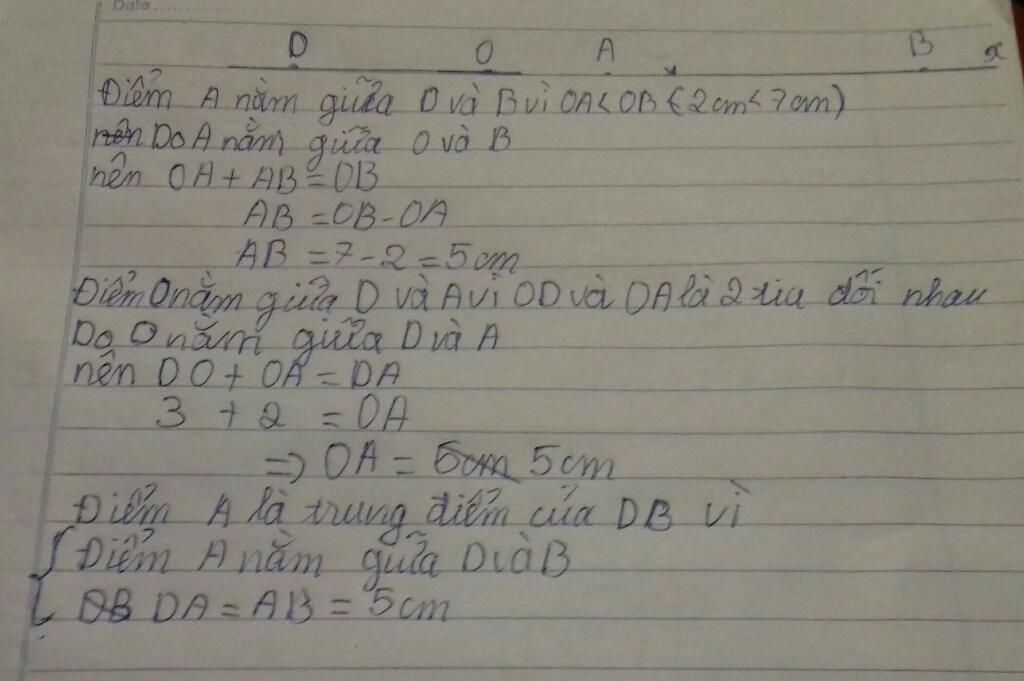 Date
D O A B x
Điểm A nằm giữa O và B vì OA < OB (2cm < 7cm)
nên Do A nằm giữa O và B
nên OA + AB = OB
AB = OB - OA
AB = 7 - 2 = 5 cm
Điểm O nằm giữa D và A vì OD và OA là 2 tia đối nhau
Do O nằm giữa D và A
nên DO + OA = DA
3 + 2 = OA
=> OA = 5cm 5 cm
Điểm A là trung điểm của DB vì
{ Điểm A nằm giữa D và B
DB DA = AB = 5 cm